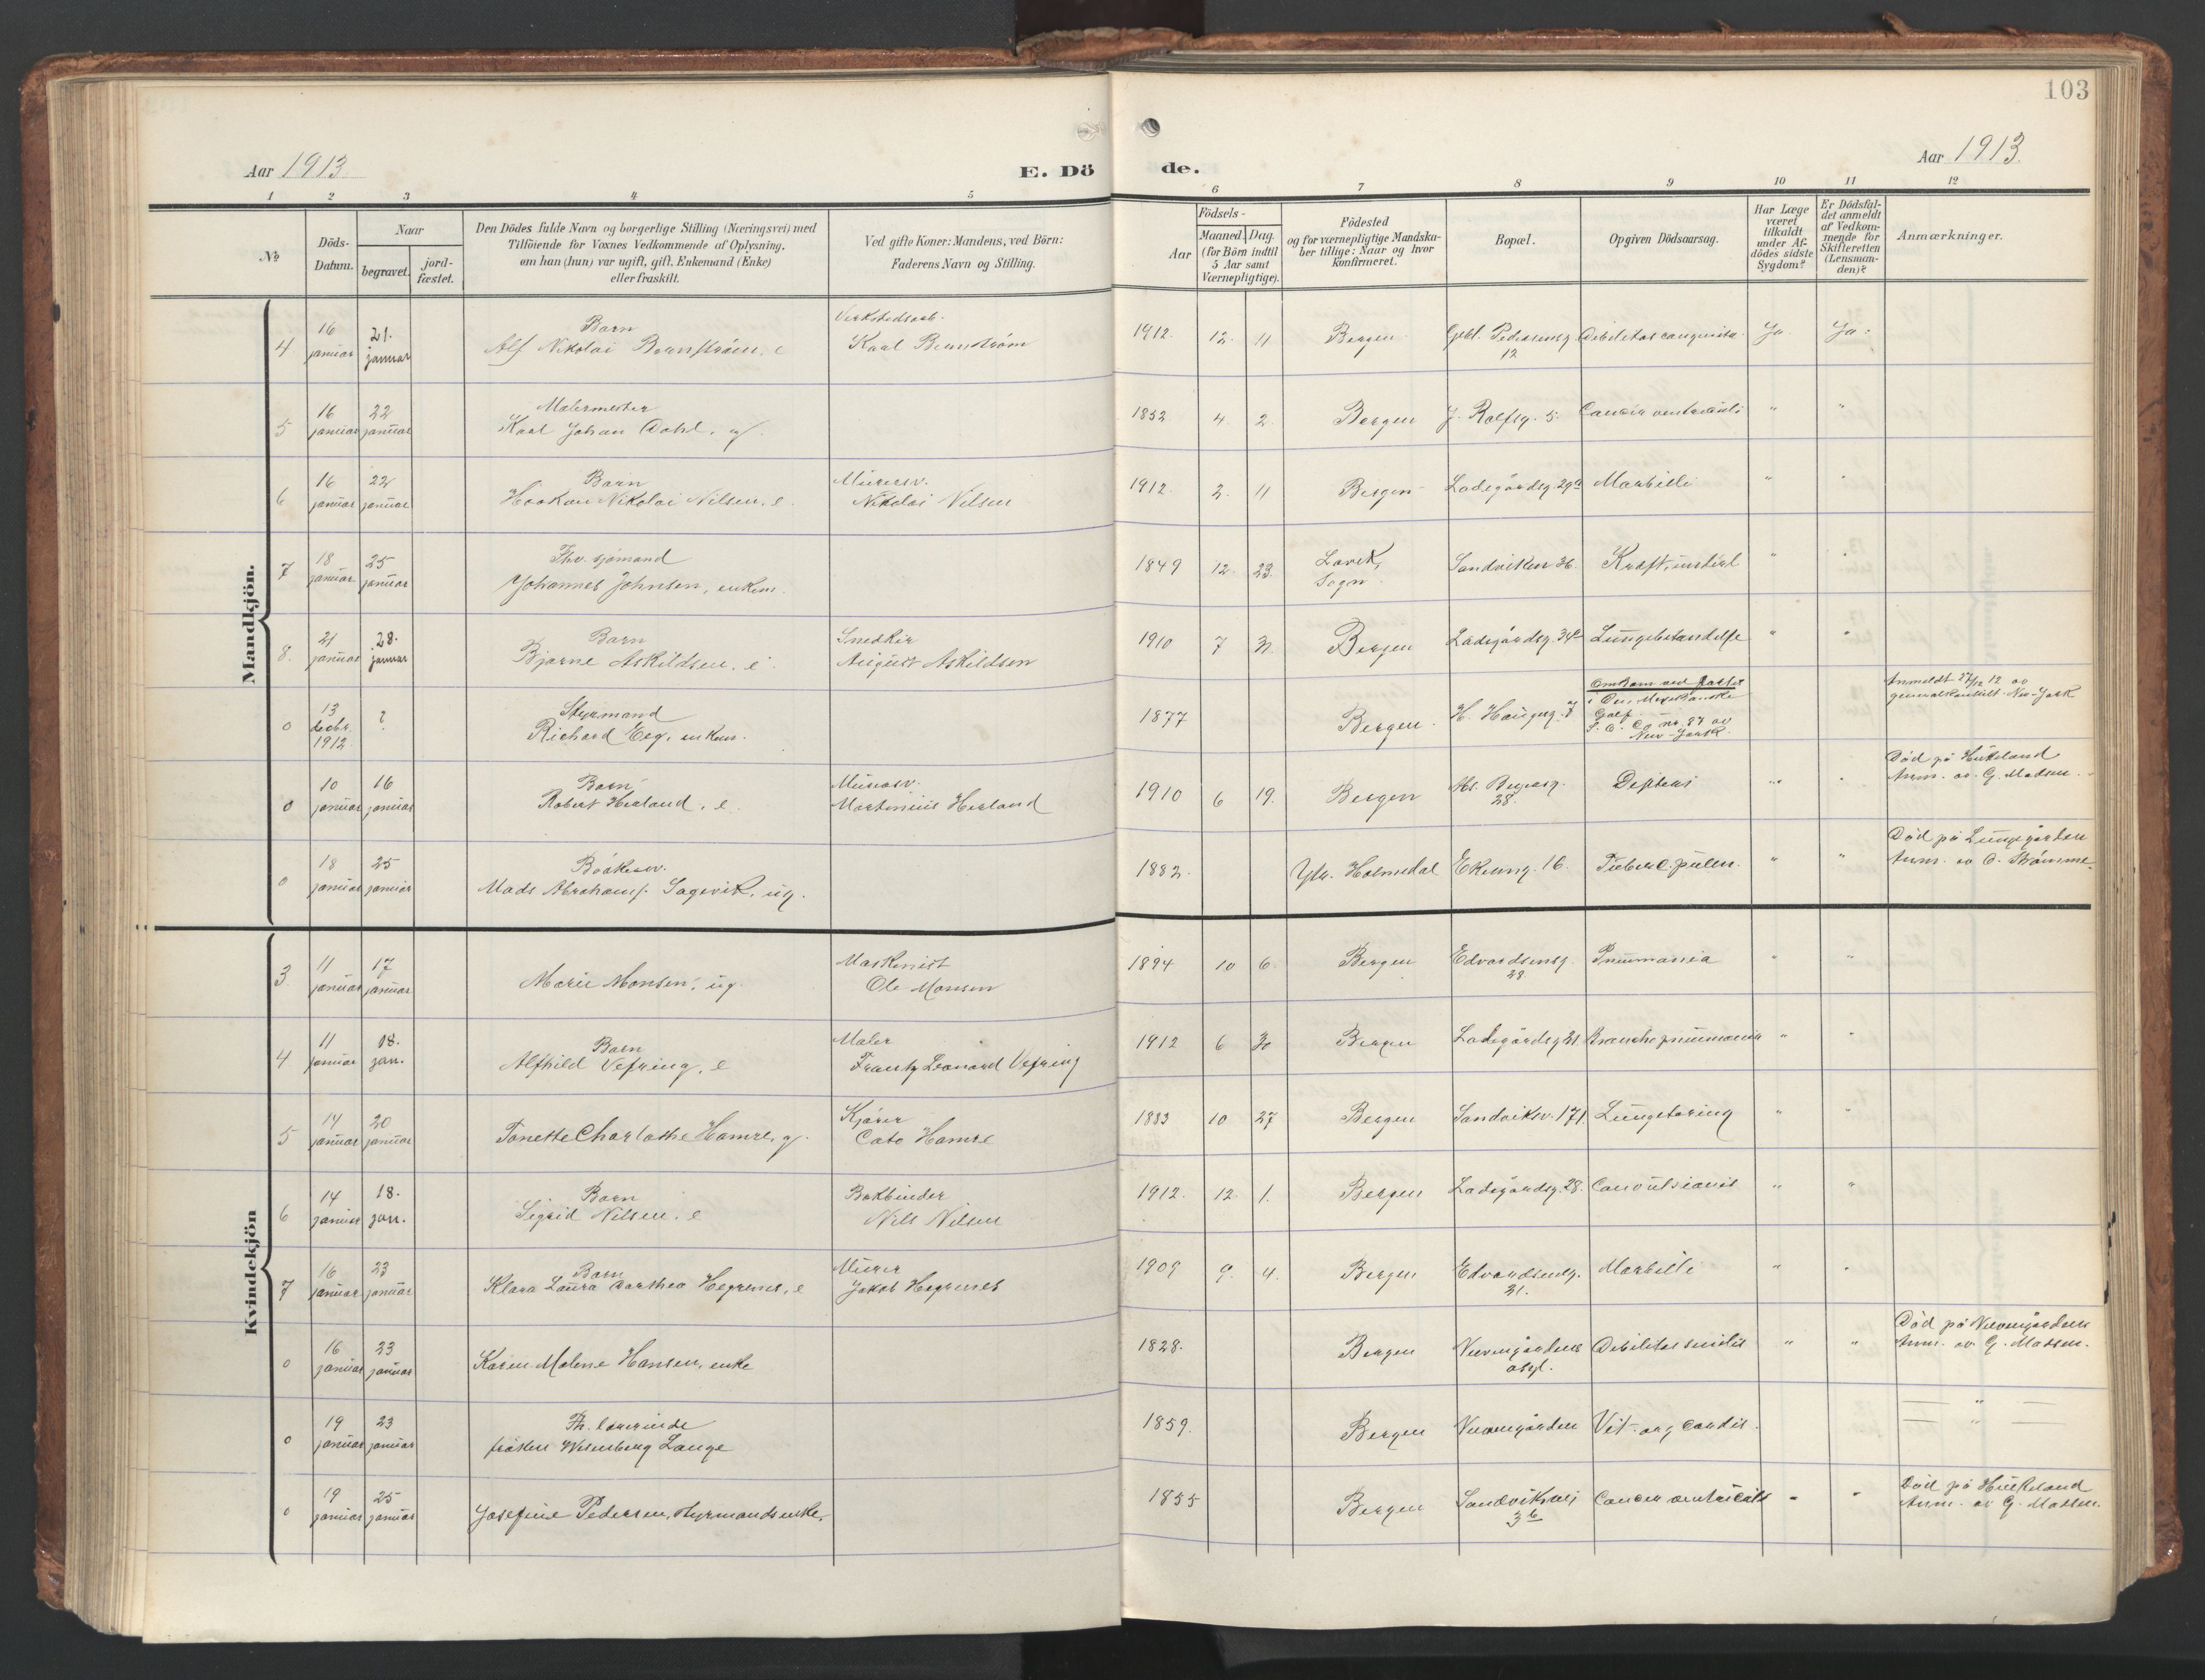 103
Aar 1913.
E. Dö
de.
Aar 1913.
1 2 3 4 5 6 7 8 9 10 11 12
No
Döds-
Datum.
Naar
begravet.
jord-
fæstet.
Den Dödes fulde Navn og borgerlige Stilling (Næringsvei) med
Tilföiende for Voxnes Vedkommende af Oplysning,
om han (hun) var ugift, gift, Enkemand (Enke)
eller fraskilt.
Ved gifte Koner: Mandens, ved Börn:
Faderens Navn og Stilling.
Födsels-
Aar
Maaned. Dag.
(for Börn indtil
5 Aar samt
Værnepligtige).
Födested
og for værnepligtige Mandska-
ber tillige: Naar og hvor
konfirmeret.
Bopæl.
Opgiven Dödsaarsag.
Har Læge
været
tilkaldt
under Af-
dödes sidste
Sygdom?
Er Dödsfal-
det anmeldt
af Vedkom-
mende for
Skifteretten
(Lensman-
den)?
Anmærkninger.
Mandkjön.
4 16 januar 21. januar
Barn
Alf Nikolai e
Verkstedsarb.
Karl
1912. 12. 11 Bergen Pedersensg. 12 Debilitas congenita Ja. Ja.
5 16 januar 22 januar
Malermester
Karl Johan Dahl, g.
1852 4. 2. Bergen J. Rolfsg. 5. Cancer ventriculi " "
6 16 januar 22 januar
Barn
Haakon Nikolai Nilsen, e.
Murersv.
Nikolai Nilsen
1912. 2. 11 Bergen Ladegårdsg. 29a Morbilli " "
7 18 januar 25 januar
Fhv. sjömand
Johannes Johnsen, enkem.
1849 12. 23. Lavik, Sogn Sandviken 36. " "
8. 21 januar 28. januar
Barn
Bjarne Askildsen, e.
Snedker
August Askildsen
1910 7 Bergen Ladegårdsg. Lungebetændelse " "
0 13 decbr. 1912 ?
Styrmand
Richard Eeg, enkem.
1877 Bergen. H. Haugesg. 7
Omkom ved forlis
i Den Mexikanske
Golf.
New-York
Anmeldt 12 av
generalkonsulat New-York
0 10 januar 16 januar
Barn
Robert Herland, e.
Murersv.
Martinius Herland
1910 6 19. Bergen 28. " "
Död på Haukeland
Anm. av G. Madsen.
0 18 januar 25 januar
Mads Abrahams. Sagevik, ug.
1882. Ytr. Holmedal Ekreng. 16. Tuberc. pulm. " "
Död på Lungegården
Anm. av O. Strömme
Kvindekjön
3. 11 januar 17 januar
Marie Monsen, ug.
Maskinist
Ole Monsen
1894 10 6. Bergen Edvardsensg. 28 Pneumonia " "
4 11 januar 18. jan.
Barn
Alfhild Vefring, e
Maler
Frantz Leonard Vefring
1912 6 30 Bergen Ladegårdsg 21. Bronchopneumonia " "
5 14 januar 20 januar
Tonette Charlotte Hamre, g.
Kjörer
Cato Hamre
1883 10 27 Bergen Sandviksv. 171. Lungetæring " "
6 14 januar 18. jan.
Barn
Sigrid Nilsen, e
Bokbinder
Nils Nilsen
1912. 12. 1. Bergen Ladegårdsg. 28. Convulsionis " "
7 16 januar 23 januar
Barn
Klara Laura Dorthea Hegrenes, e
Murer
Jakob Hegrenes
1909 9. 4. Bergen Edvardsensg. 21. Morbilli " "
0 16 januar 23 januar
Karen Malene Hansen, enke
1828. Bergen asyl. Debilitas senilis " "
Anm. av G. Madsen.
0 19 januar 23 januar
Fh. lærerinde
fröken Wesenberg Lange
1859. Bergen Vit. org. cordis.
— " —
— " —
0 19 januar 25 januar
Josefine Pedersen, styrmandsenke,
1855 Bergen Sandviksvei 3b Cancer ventriculi " "
Död på Haukeland
Anm. av G. Madsen.